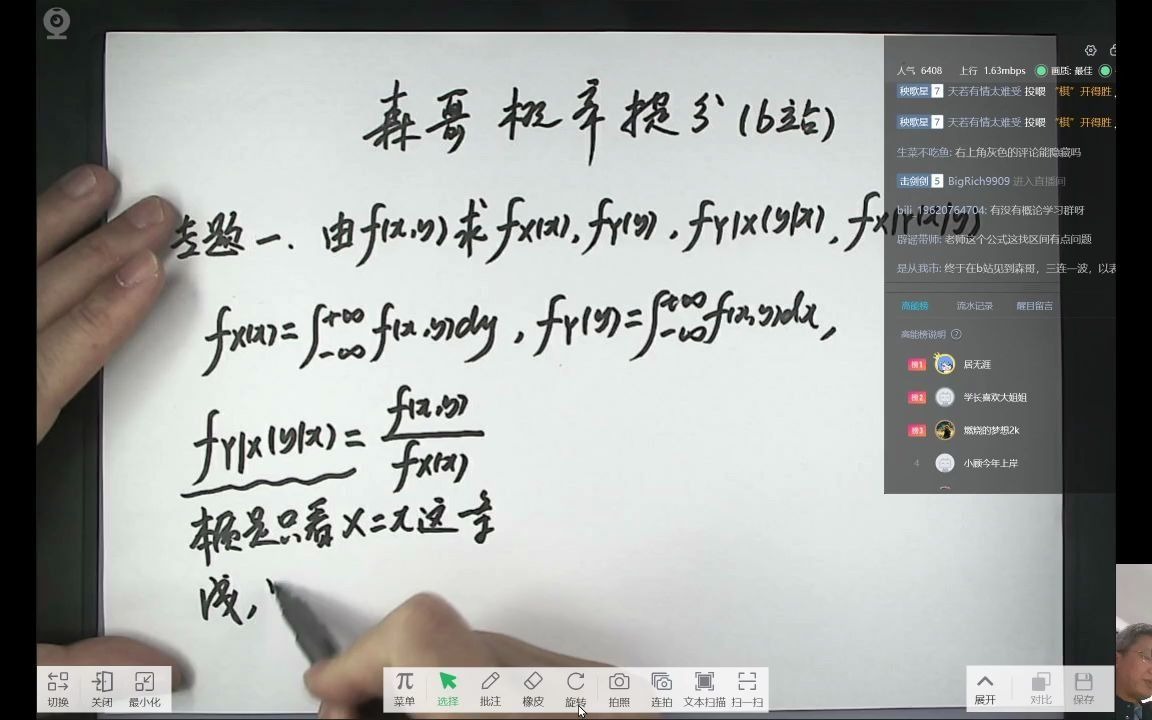 森哥概率提分(b站)
专题一. 由f(x,y)求fX(x), fY(y), fY|X(y|x), fX|Y(x|y)
fX(x)=∫_{-∞}^{+∞}f(x,y)dy, fY(y)=∫_{-∞}^{+∞}f(x,y)dx,
fY|X(y|x)=f(x,y)/fX(x)
本质是只看X=x这一条
线,
人气 6408 上行 1.63mbps 画质: 最佳
秧歌星 7 天若有情太难受 投喂 “棋”开得胜
秧歌星 7 天若有情太难受 投喂 “棋”开得胜
生菜不吃鱼: 右上角灰色的评论能隐藏吗
击剑剑 5 BigRich9909 进入直播间
bili_19620764704: 有没有概论学习群呀
辟谣带师: 老师这个公式这找区间有点问题
是从我市: 终于在b站见到森哥，三连一波，以表
高能榜 流水记录 醒目留言
高能榜说明 ?
榜1 居无涯
榜2 学长喜欢大姐姐
榜3 燃烧的梦想2k
4 小顾今年上岸
切换 关闭 最小化 菜单 选择 批注 橡皮 旋转 拍照 连拍 文本扫描 扫一扫 展开 对比 保存